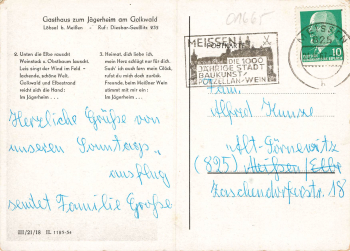 Gasthaus zum Jägerheim am Golkwald
Löbsal b. Meißen · Ruf: Diesbar-Seußlitz 231
2. Unten die Elbe rauscht
Weinstock u. Obstbaum lauscht.
Leis singt der Wind im Feld –
lachende, schöne Welt.
Golkwald und Elbestrand
reicht sich die Hand:
Im Jägerheim . . .
3. Heimat, dich liebe ich,
mein Herz schlägt nur für dich.
Such' ich auch fern mein Glück,
rufst du mich doch zurück.
Freunde, beim Heimatwein
stimmt mit mir ein:
Im Jägerheim . . .
Herzliche Grüße von
unseren Sonntags-
ausflug
sendet Familie Große
III/21/18 II. 1187-54
01665
MEISSEN
DIE 1000
JÄHRIGE STADT
BAUKUNST
PORZELLAN · WEIN
MEISSEN
10
Fam.
Alfred Kunze
Alt-Sörnewitz
(825) Meißen/Elbe
Zaschendorferstr. 18